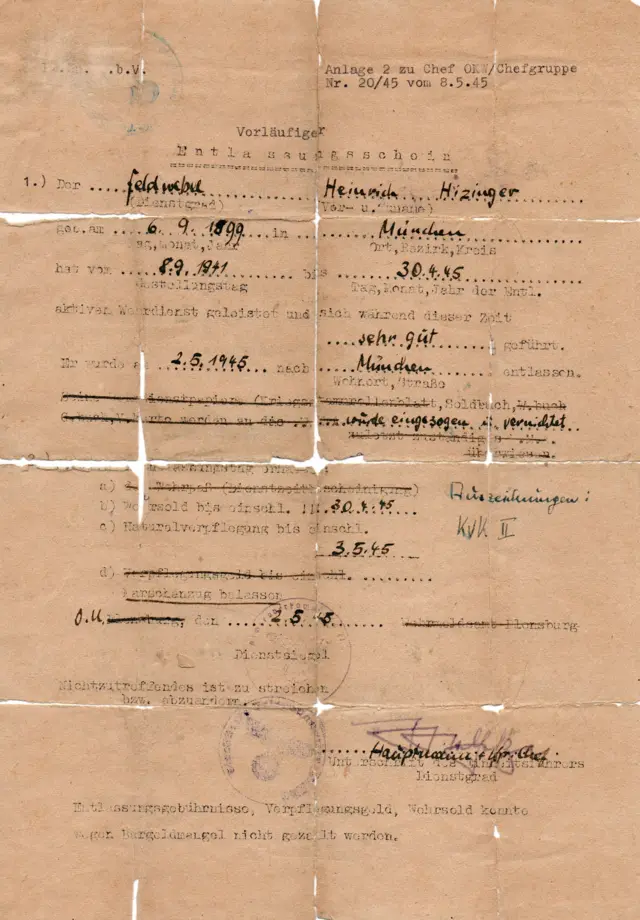 .b.V. Anlage 2 zu Chef OKW/Chefgruppe
Nr. 20/45 vom 8.5.45
Vorläufiger
Entlassungsschein
1.) Der .... Feldwebel .... Heinrich Hizinger
(Dienstgrad) Vor- u. Zuname)
geb.am .... 6. 9. 1899 .... in .... München
Tag,Monat,Jahr Ort,Bezirk,Kreis
hat vom .... 8.9.1941 .... bis .... 30.4.45
Gestellungstag Tag,Monat,Jahr der Entl.
aktiven Wehrdienst geleistet und sich während dieser Zeit
.... sehr gut .... geführt.
Er wurde am .... 2.5.1945 .... nach .... München .... entlassen.
Wohnort, Straße
Soldbuch,
werden an die .... wurde eingezogen u. vernichtet
überwiesen.
a) Wehrpaß (Dienstzeitbescheinigung)
Auszeichnungen:
b) Wehrsold bis einschl. .... 30.4.45
KVK II
c) Naturalverpflegung bis einschl.
3.5.45
d) Verpflegungsgeld bis einschl. ....
Marschanzug belassen
O.U. Flensburg, den .... 2.5.45 .... Wehrmeldeamt Flensburg
Dienstsiegel
Nichtzutreffendes ist zu streichen
bzw. abzuändern.
Hauptmann u.
Unterschrift des Einheitsführers
Dienstgrad
Entlassungsgebührnisse, Verpflegungsgeld, Wehrsold konnte
wegen Bargeldmangel nicht gezahlt werden.